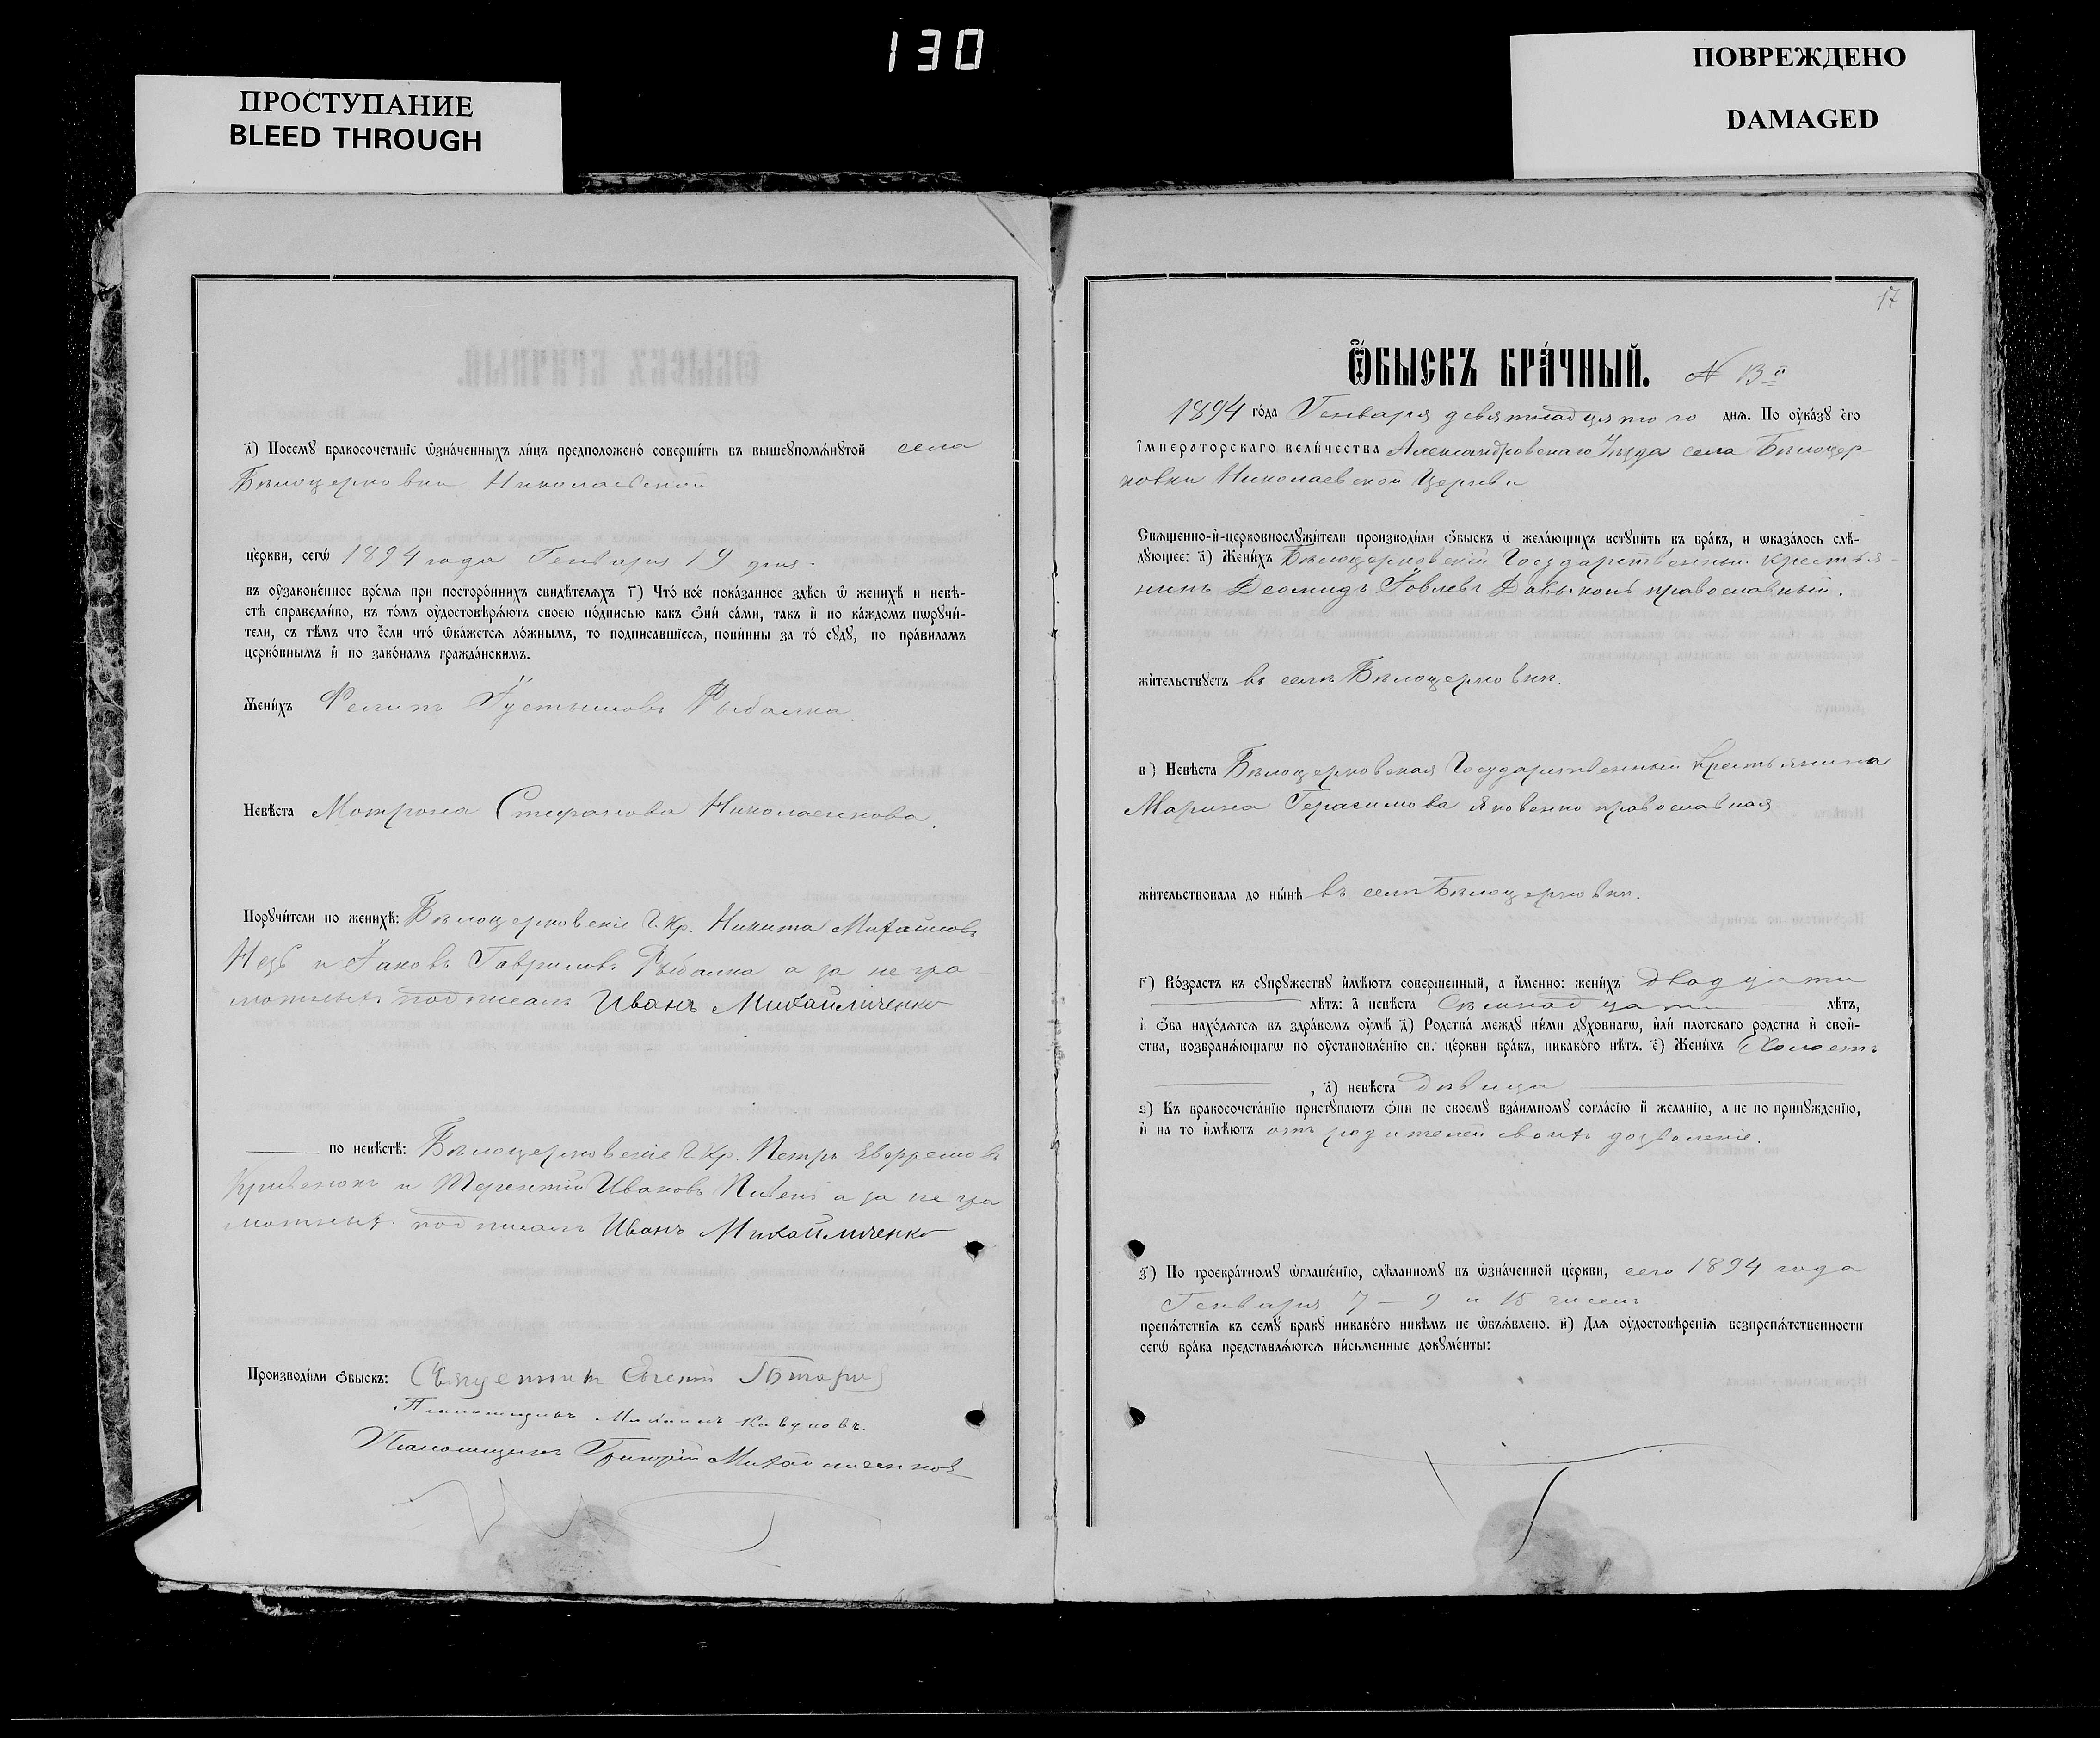 130
ПРОСТУПАНИЕ
BLEED THROUGH
ПОВРЕЖДЕНО
DAMAGED
д҃) Посемꙋ бракосочетаніе ѡзна́ченныхъ ли́цъ предположено́ соверши́ть въ вышеꙋпомѧ́нꙋтой села
Бѣлоцерковки Николаевской
це́ркви, сегѡ̀ 1894 года Генваря 19 дня.
въ оу҆зако́ненное вре́мѧ при посторо́ннихъ свидѣ́телѧхъ г҃) Что̀ всѐ пока́занное здѣ́сь ѡ҆ женихѣ̀ и невѣ́-
стѣ справедли́во, въ то́мъ оу҆достовѣрѧ́ютъ своею по́дписью какъ ѻ҆нѝ са́ми, такъ и҆ по ка́ждомъ пѡрꙋчи́-
тели, съ тѣ́мъ что є҆́сли что̀ ѡ҆ка́жетсѧ ло́жнымъ, то подписавшїесѧ, пови́нны за то̀ сꙋдꙋ̀, по пра́виламъ
церко́внымъ и҆ по зако́намъ гражда́нскимъ.
Жени́хъ Рыбалка
Невѣ́ста Мотрона Стефанова Николаенкова.
Порꙋчи́тели по женихѣ̀: Бѣлоцерковскіе Г. Кр. Никита Михайловъ
и Іаковъ Гавриловъ Рыбалка а за не гра-
мотныхъ подписалъ Иванъ Михайличенко
по невѣ́стѣ: Бѣлоцерковскіе Г. Кр. Петръ Ефремовъ
и Терентій Ивановъ а за не гра
мотныхъ подписалъ Иванъ Михайличенко
Производи́ли ѻ҆бы́скъ: Священникъ Евгеній
Псаломщикъ
Псаломщикъ Григорій Михайличенковъ
17
Ѻ҆БЫ́СКЪ БРА́ЧНЫЙ. № 13й
1894 го́да Генваря девятнадцятого днѧ. По оу҆ка́зꙋ є҆гѡ̀
і҆мпера́торскаго вели́чества Александровскаго Уѣзда села Бѣлоцер-
ковки Николаевской Церкви
Свѧщенно-и҆-церковнослꙋжи́тели производи́ли ѻ҆бы́скъ ѡ҆ жела́ющихъ встꙋпи́ть въ бра́къ, и ѡ҆каза́лось слѣ́-
дꙋющее: а҃) Жени́хъ Бѣлоцерковскій Государственный Крестья-
нинъ Деомидъ Іовлевъ православный.
жи́тельствꙋетъ въ селѣ Бѣлоцерковки.
в҃) Невѣ́ста Бѣлоцерковская Государственный Крестьянина
Марина Герасимова Яковенко православная
жи́тельствовала до ны́нѣ въ селѣ Бѣлоцерковки.
г҃) Во́зрастъ къ сꙋпрꙋ́жествꙋ и҆мѣ́ютъ совершенный, а и҆́менно: жени́хъ двадцати
лѣ́тъ: а҆ невѣ́ста Семнадцати лѣ́тъ,
и҆ ѻ҆́ба нахо́дѧтсѧ въ здра́вомъ оу҆мѣ̀ д҃) Родства̀ междꙋ ни́ми дꙋховнагѡ, и҆лѝ плотскаго родства и҆ свой-
ства, возбранѧ́ющагѡ по оу҆становле́нїю св. це́ркви бра́къ, никако́го нѣ́тъ. є҃) Жени́хъ Холостъ
, а҆) невѣ́ста дѣвица
ѕ҃) Къ бракосочета́нїю пристꙋпа́ютъ ѻ҆нѝ по своемꙋ взаи́мномꙋ согла́сїю и҆ жела́нїю, а не по принꙋжде́нїю,
и҆ на то и҆мѣ́ютъ отъ родителей своихъ дозволеніе.
з҃) По троекра́тномꙋ ѡ҆глаше́нїю, сдѣ́ланномꙋ въ ѡ҆зна́ченной це́ркви, сего 1894 года
Генваря 7 – 9 и 15 чиселъ
препѧ́тствїѧ къ семꙋ̀ бракꙋ никако́го никѣ́мъ не ѡ҆бъѧ́влено. и҃) Длѧ оу҆достовѣ́ренїѧ безпрепѧ́тственности
сегѡ̀ бра́ка представлѧ́ютсѧ пи́сьменные докꙋме́нты: